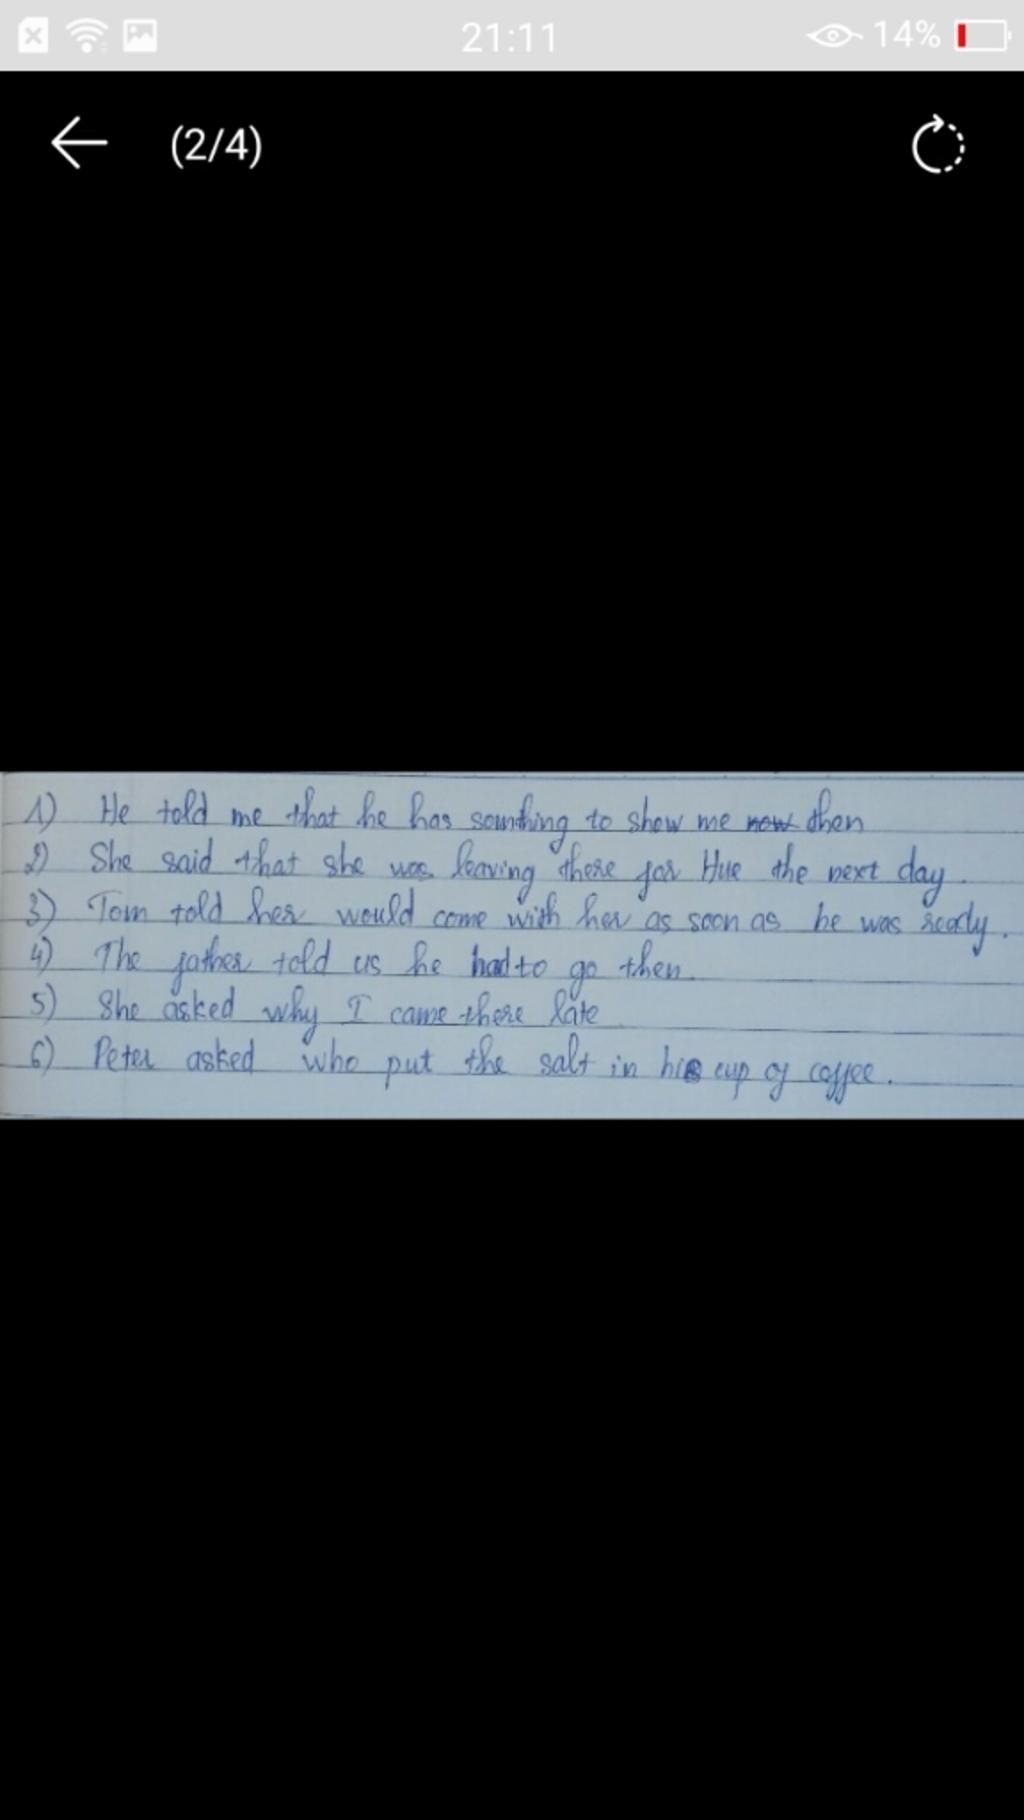 21:11
14%
(2/4)
1) He told me that he has somthing to show me now then
2) She said that she was leaving there for Hue the next day.
3) Tom told her would come with her as soon as he was ready.
4) The father told us he had to go then.
5) She asked why I came there late
6) Peter asked who put the salt in his cup of coffee.